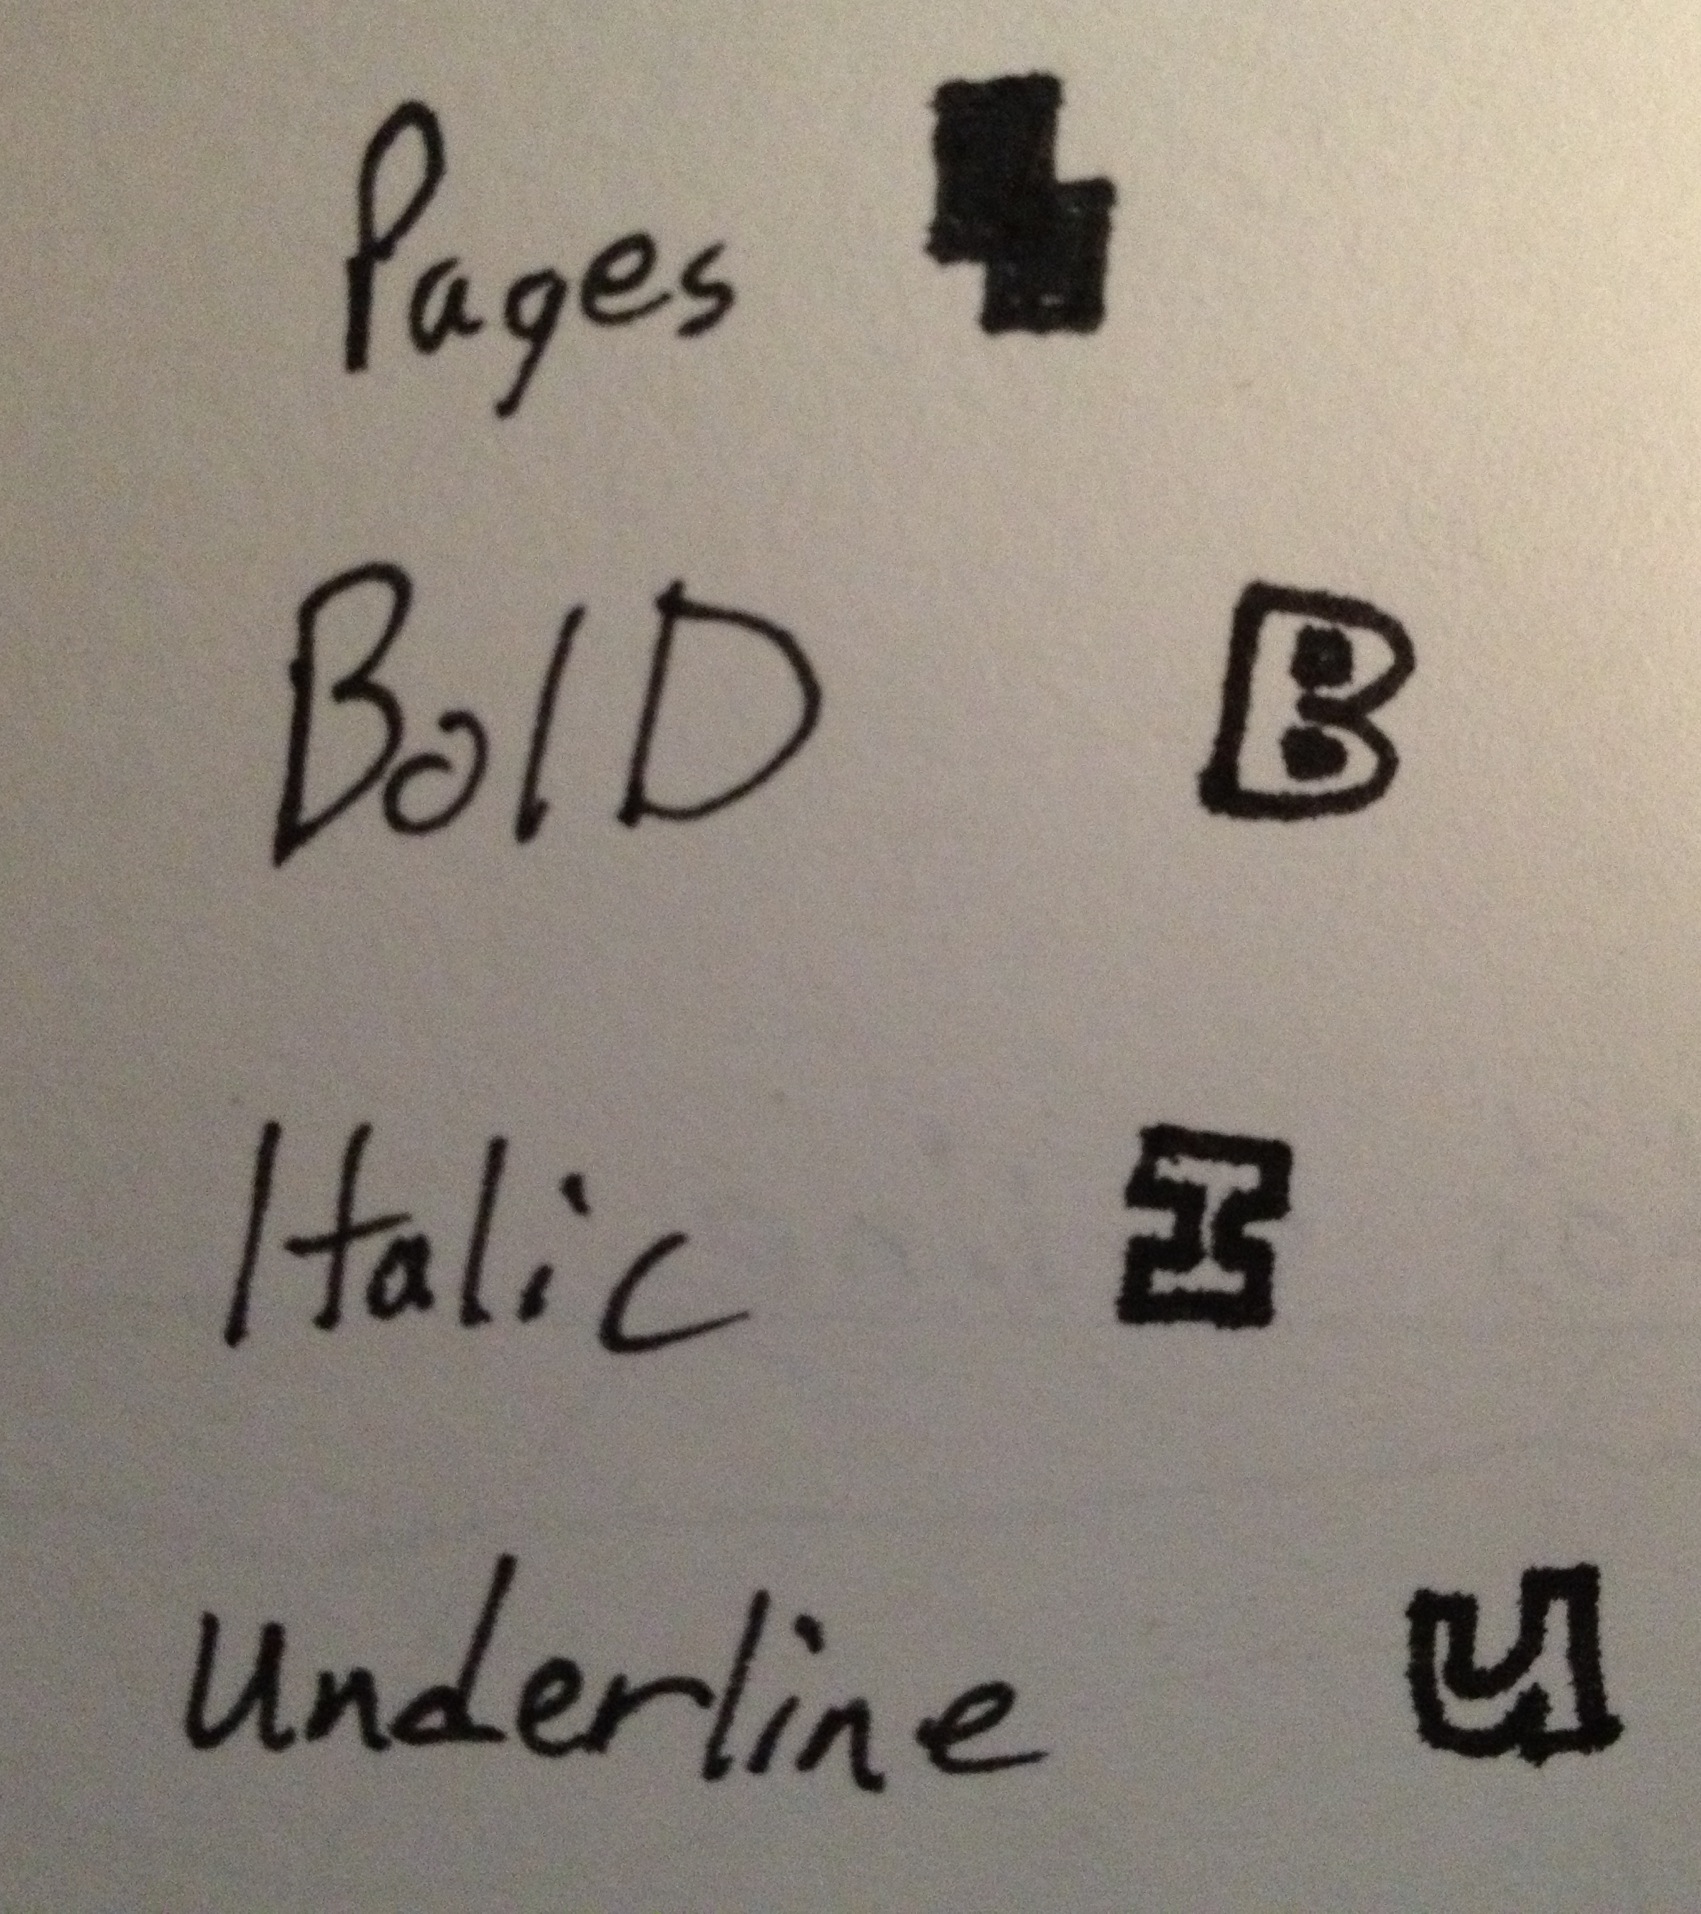 Pages
BolD B
Italic I
Underline U